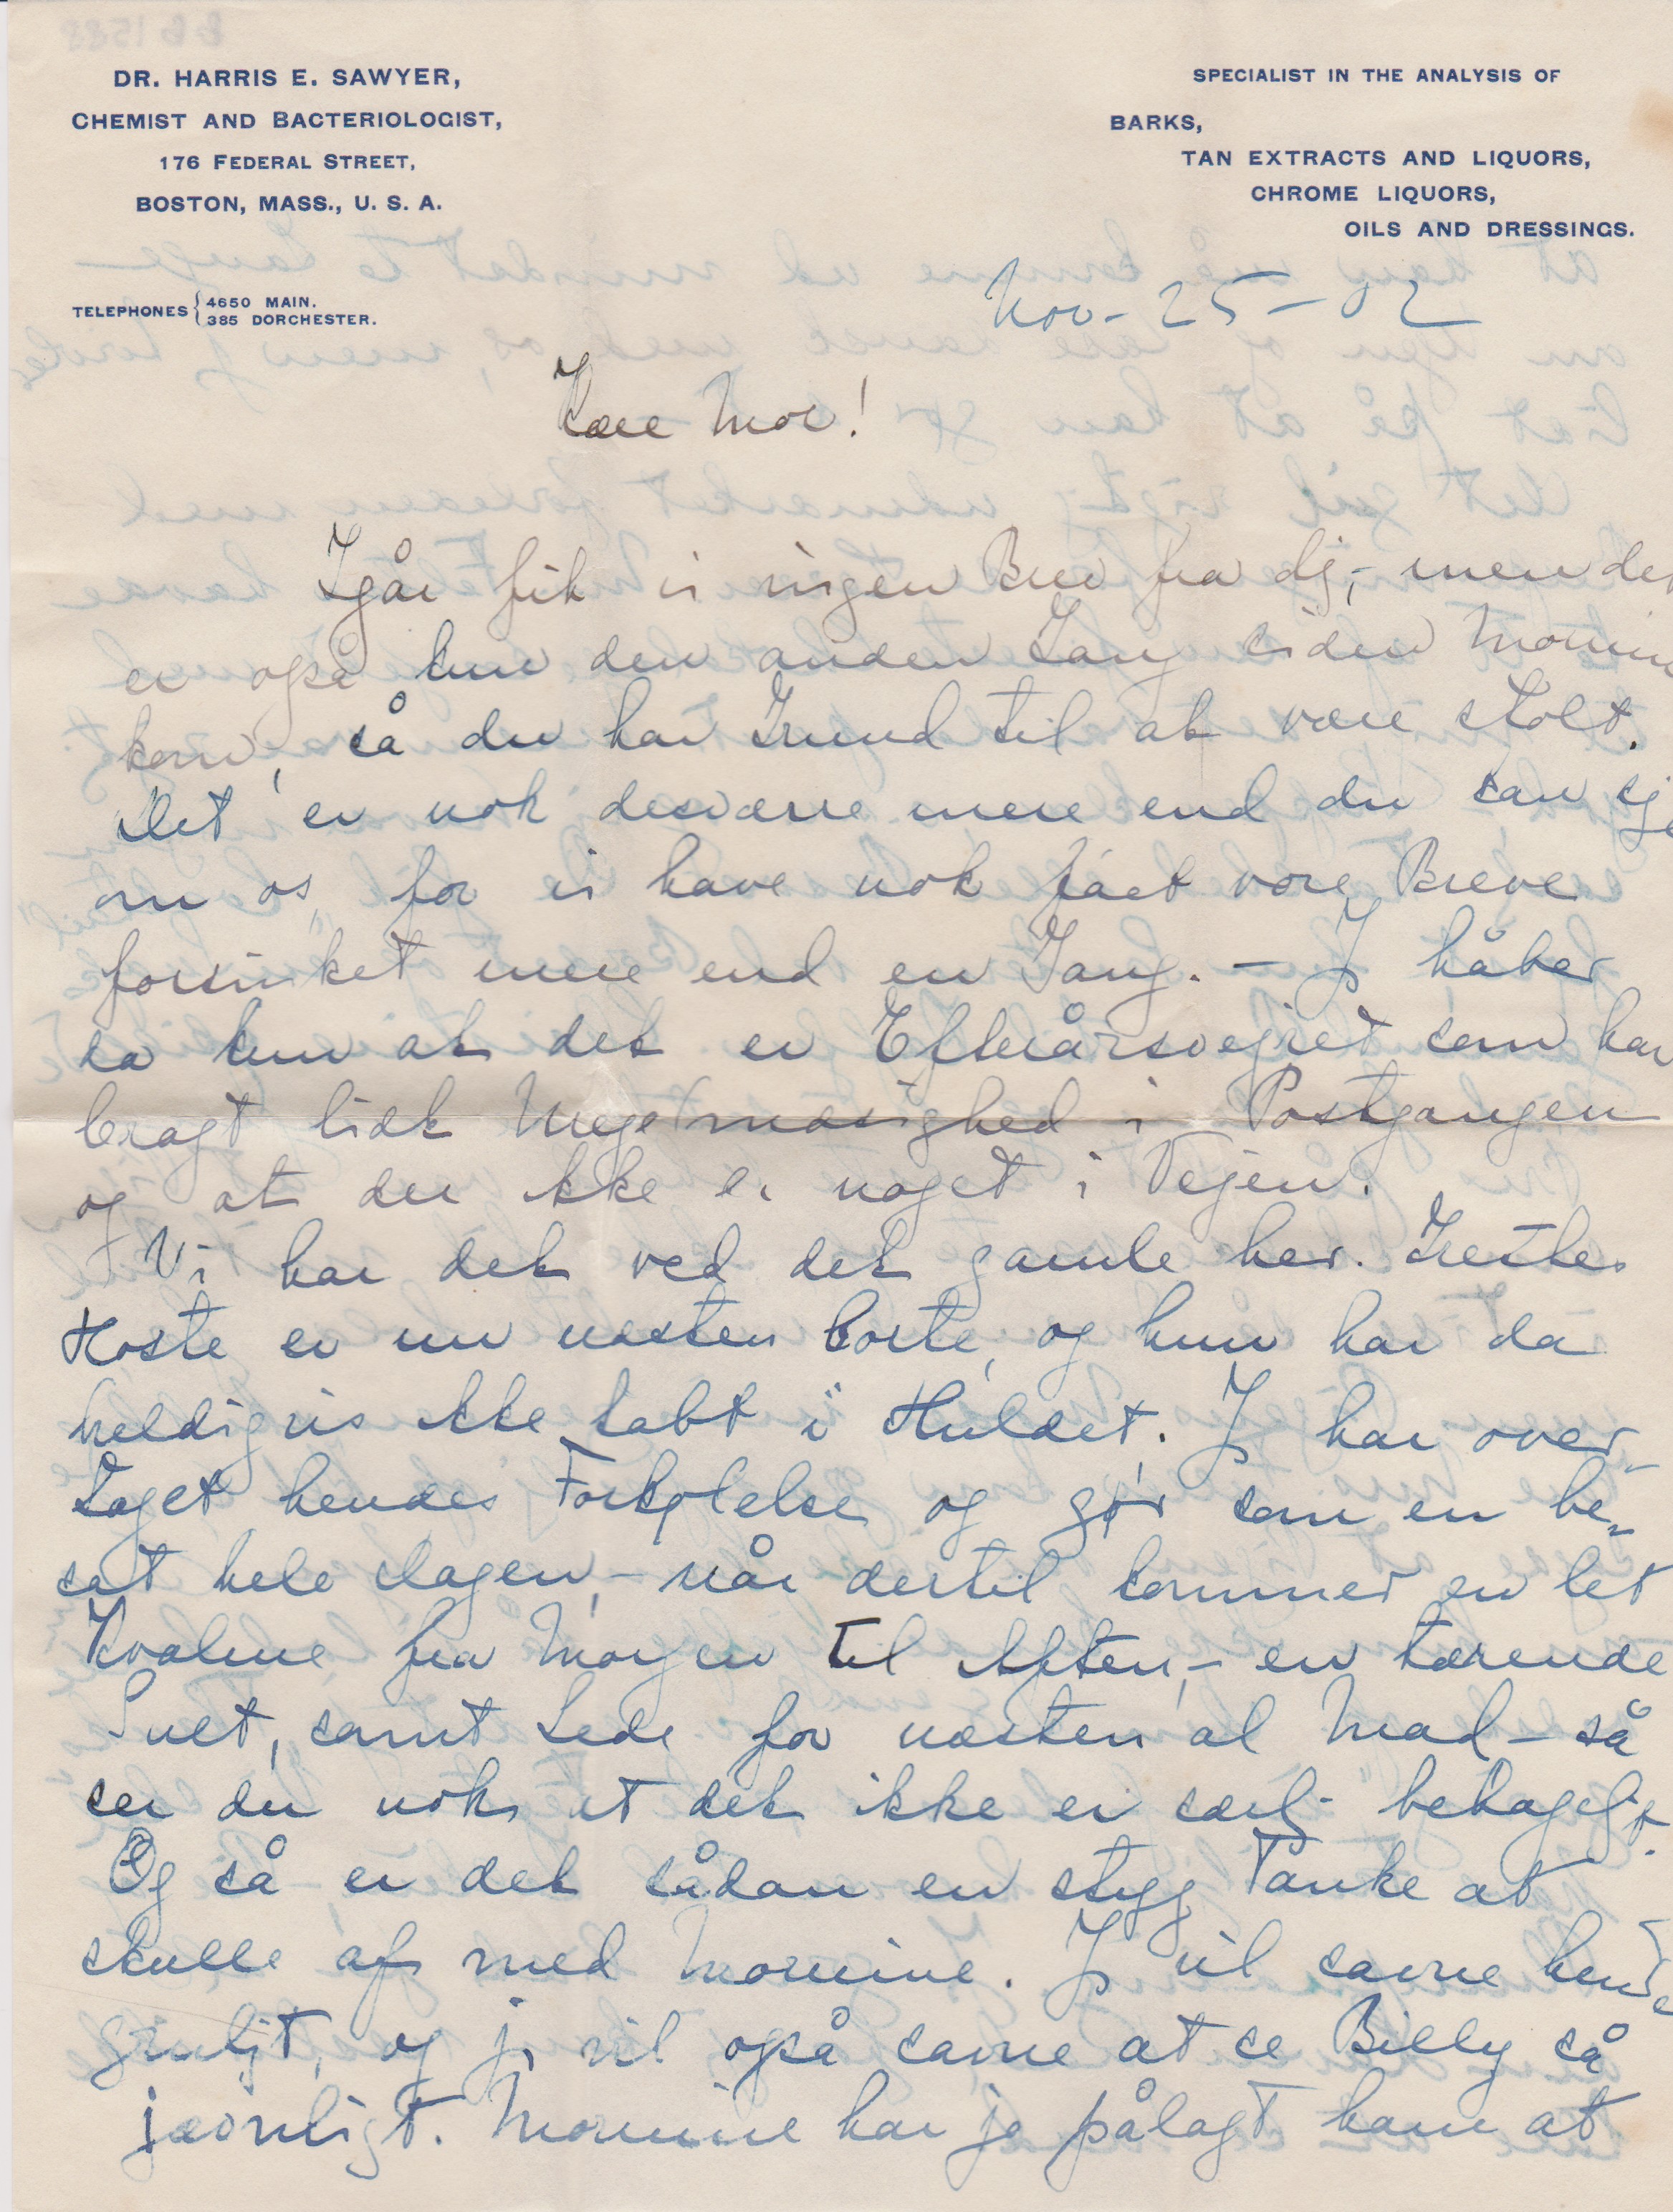 DR. HARRIS E. SAWYER,
CHEMIST AND BACTERIOLOGIST,
176 FEDERAL STREET,
BOSTON, MASS., U. S. A.
TELEPHONES { 4650 MAIN.
385 DORCHESTER.
SPECIALIST IN THE ANALYSIS OF
BARKS,
TAN EXTRACTS AND LIQUORS,
CHROME LIQUORS,
OILS AND DRESSINGS.
Nov- 25 - 02
Kære Mor!
Igår fik vi ingen Brev fra dig, - men det
er også kun den anden Gang siden Mornine
kom, så du har Grund til at være stolt.
Det er nok desværre mere end du kan sige
om os, for vi have nok fået vore Breve
forsinket mere end en Gang. - J håber
da kun at det er Efterårsvejret som har
bragt lidt Uregelmæssighed i Postgangen
og at der ikke er noget i Vejen.
Vi har det ved det gamle her. Gretes
Hoste er nu næsten borte, og hun har da
heldigvis ikke tabt i Huldet. J har over-
taget hendes Forkølelse og gør som en be-
sat hele Dagen, - når dertil kommer en let
Kvalme fra Morgen til Aften, - en tærende
Sult, samt Lede for næsten al Mad - så
ser du nok at det ikke er særlig behageligt.
Og så er det sådan en styg Tanke at
skulle af med Mornine. J vil savne hende
gruligt, og j vil også savne at se Billy så
jævnligt. Mornine har jo pålagt ham at